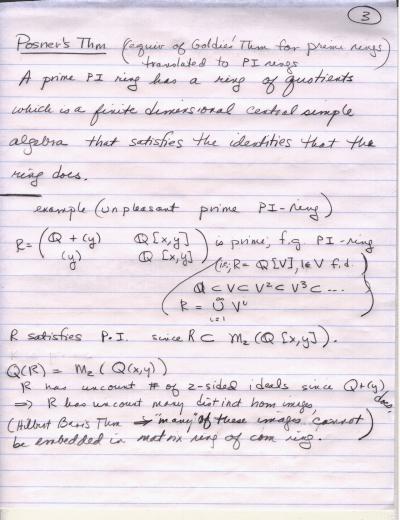 3
Posner's Thm (equiv of Goldie's Thm for prime rings)
translated to PI rings
A prime PI ring has a ring of quotients
which is a finite dimensional central simple
algebra that satisfies the identities that the
ring does.
example (unpleasant prime PI-ring)
R = ( Q + (y)   Q [x,y] ) is prime, f.g. PI-ring
(y)   Q [x,y]
(i.e; R = Q[V], 1∈V f.d.)
Q ⊂ V ⊂ V² ⊂ V³ ⊂ ....
R = ∪ Vⁱ
R satisfies P.I. since R ⊂ M₂ (Q [x,y]).
Q(R) = M₂ (Q(x,y))
R has uncount # of 2-sided ideals since Q+(y) does,
⇒ R has uncount many distinct hom images
(Hilbert Basis Thm ⇒ "many" of these images cannot
be embedded in matrix ring of com ring.)